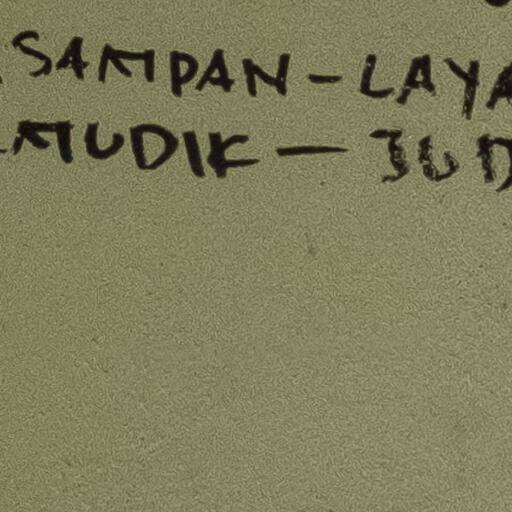 SAMPAN - LAYA
MUDIK — JUD